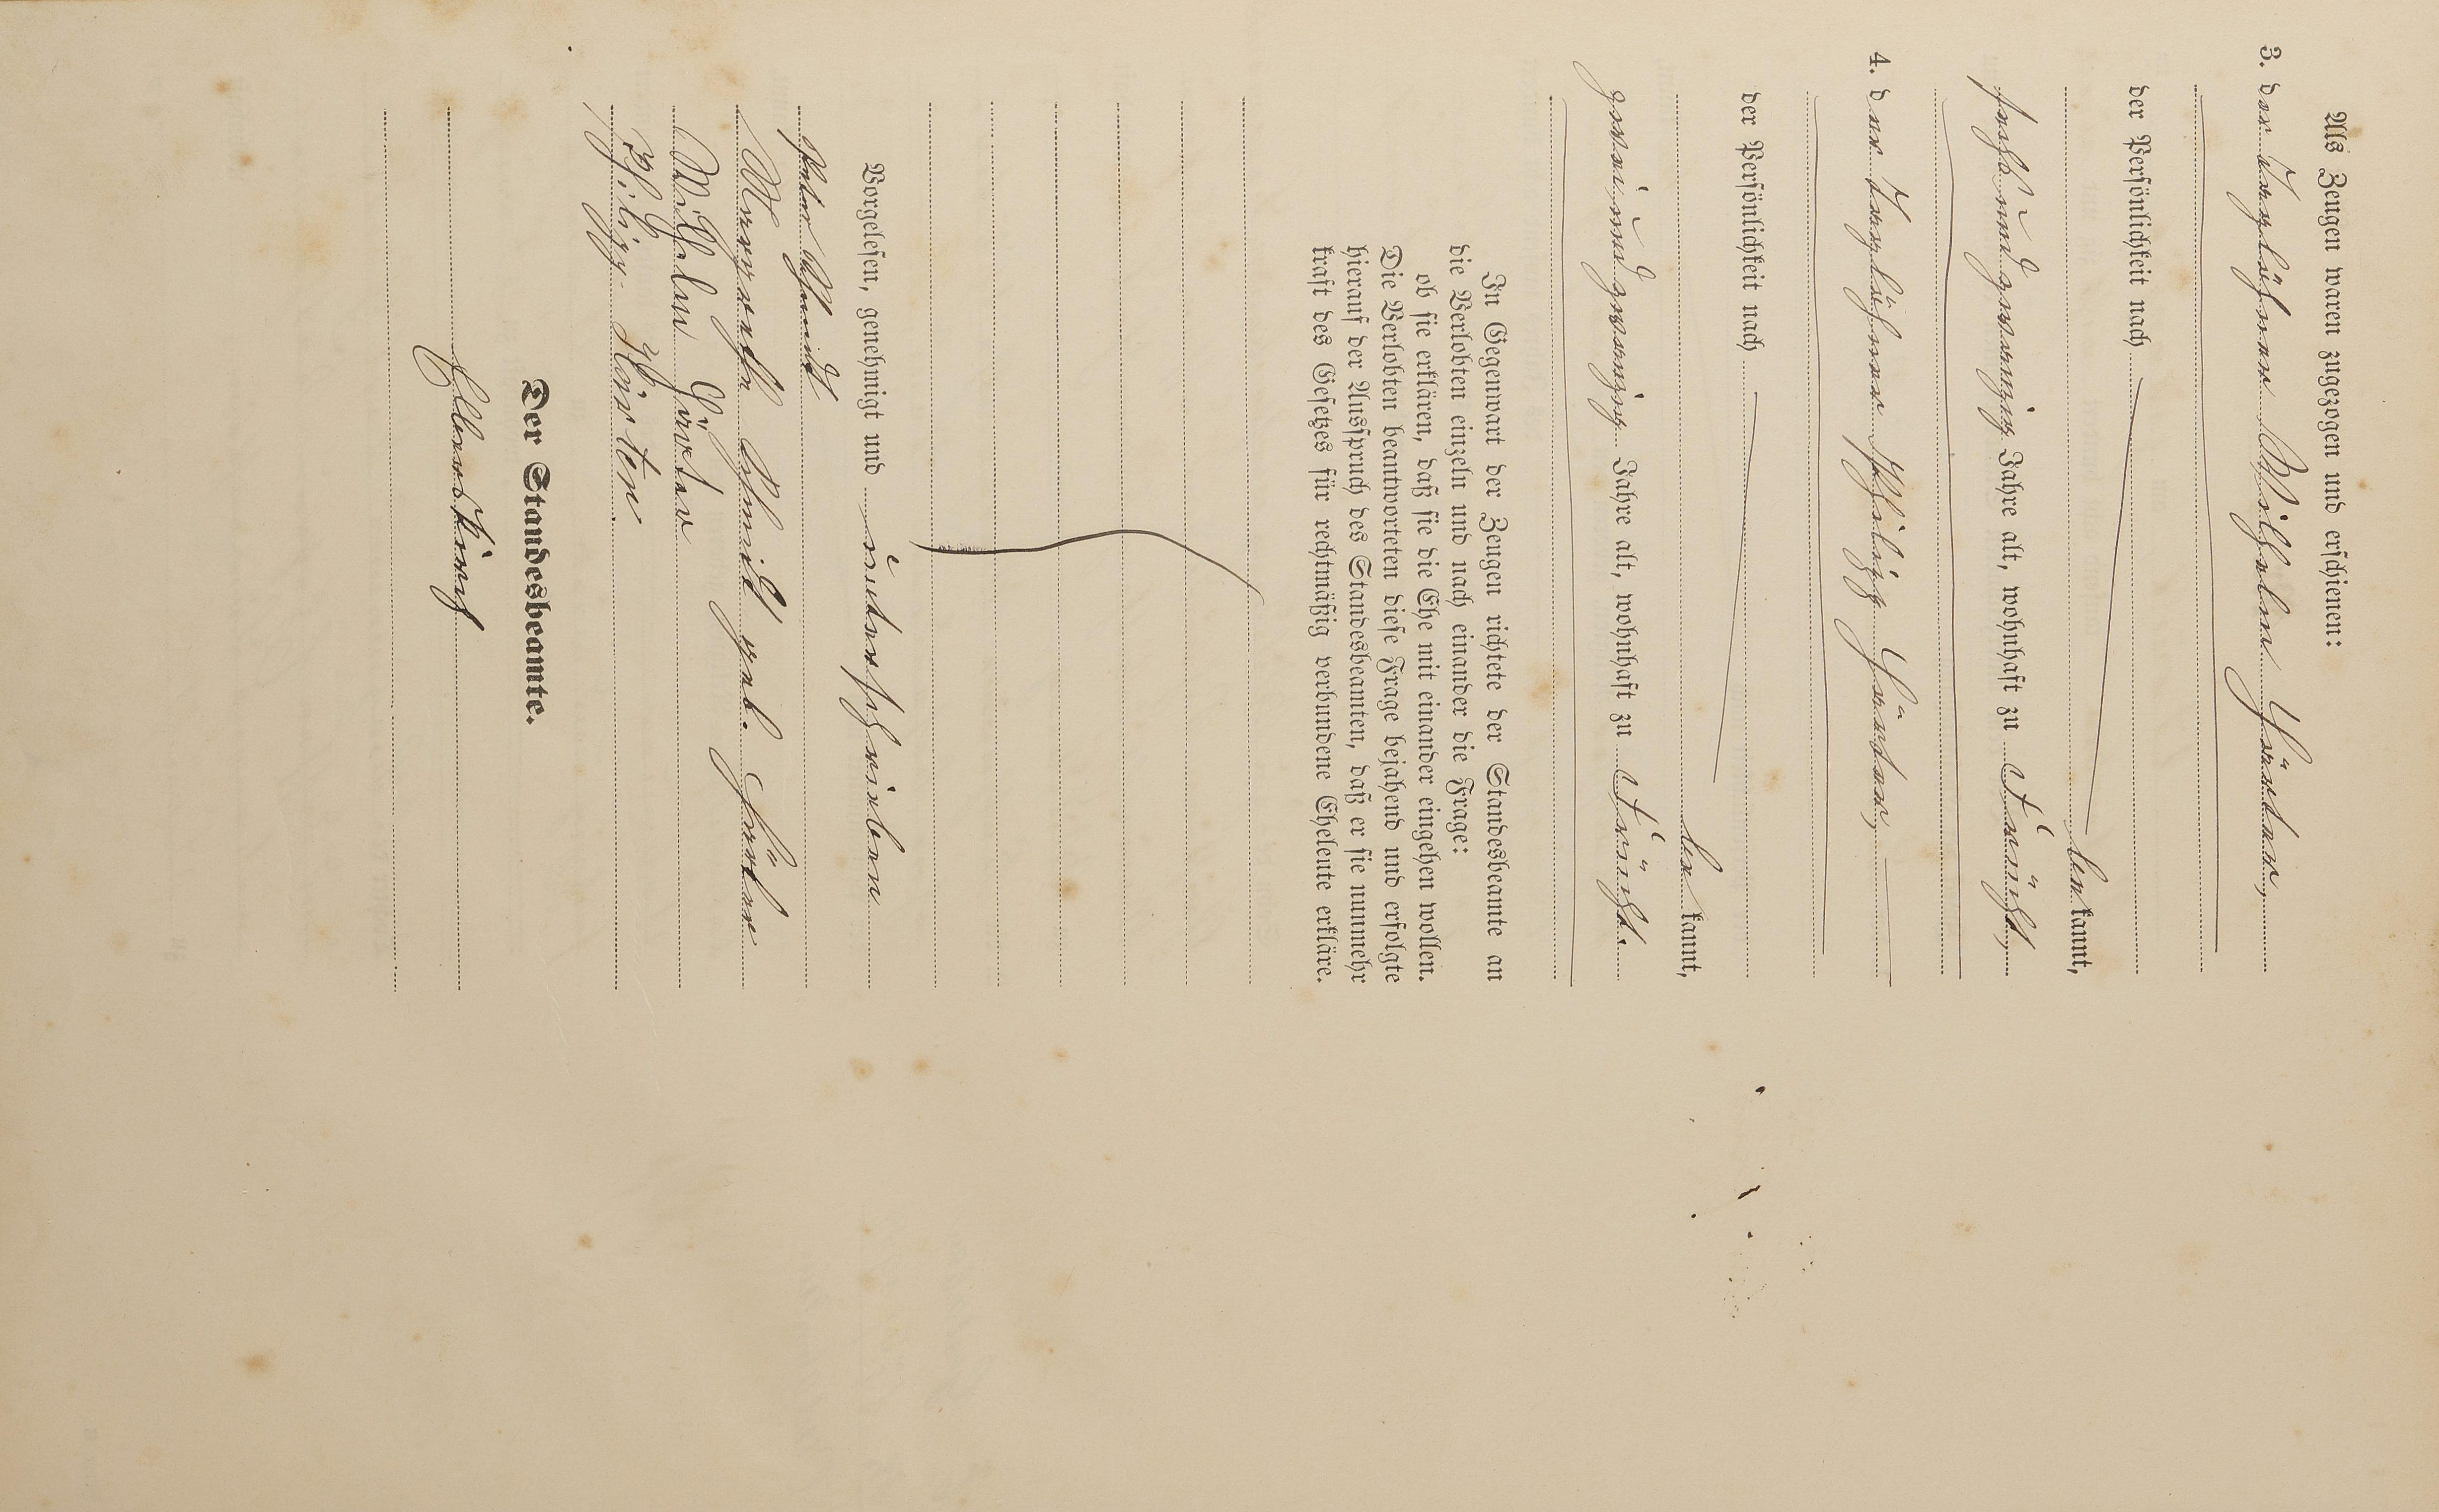 Als Zeugen waren zugezogen und erschienen:
3. der Tagelöhner Wilhelm Görter,
der Persönlichkeit nach
bekannt,
sechsundzwanzig Jahre alt, wohnhaft zu Frücht,
4. der Tagelöhner Philipp
der Persönlichkeit nach
bekannt,
zweiundzwanzig Jahre alt, wohnhaft zu Frücht.
In Gegenwart der Zeugen richtete der Standesbeamte an
die Verlobten einzeln und nach einander die Frage:
ob sie erklären, daß sie die Ehe mit einander eingehen wollen.
Die Verlobten beantworteten diese Frage bejahend und erfolgte
hierauf der Ausspruch des Standesbeamten, daß er sie nunmehr
kraft des Gesetzes für rechtmäßig verbundene Eheleute erkläre.
Vorgelesen, genehmigt und unterschrieben
Peter Schmidt
Schmidt geb.
Wilhelm Görter
Philipp
Der Standesbeamte.